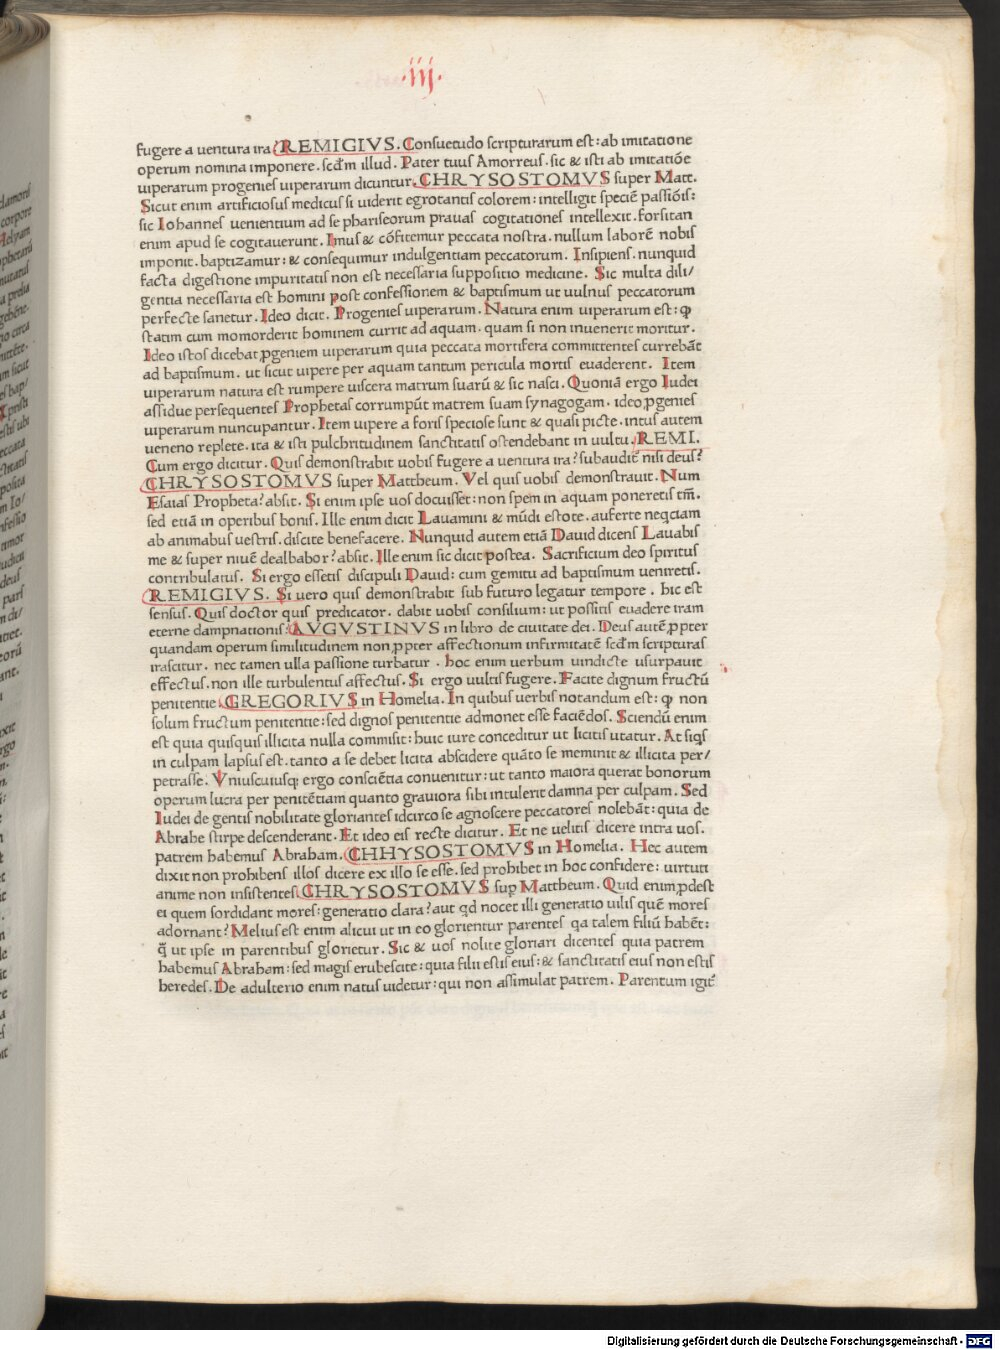 ·iij·
fugere a uentura ira REMIGIVS. Consuetudo scripturarum est: ab imitatione
operum nomina imponere. scd̄m illud. Pater tuus Amorreus. sic & isti ab imitatiōe
uiperarum progenies uiperarum dicuntur. CHRYSOSTOMVS super Matt.
Sicut enim artificiosus medicus si uiderit egrotantis colorem: intelligit speciē passiōis:
sic Iohannes uenientium ad se phariseorum prauas cogitationes intellexit. forsitan
enim apud se cogitauerunt. Imus & cōfitemur peccata nostra. nullum laborē nobis
imponit. baptizamur: & consequimur indulgentiam peccatorum. Insipiens. nunquid
facta digestione impuritatis non est necessaria suppositio medicine. Sic multa dili/
gentia necessaria est homini post confessionem & baptismum ut uulnus peccatorum
perfecte sanetur. Ideo dicit. Progenies uiperarum. Natura enim uiperarum est: ꝙ
statim cum momorderit hominem currit ad aquam. quam si non inuenerit moritur.
Ideo istos dicebat ꝓgeniem uiperarum quia peccata mortifera committentes currebāt
ad baptismum. ut sicut uipere per aquam tantum pericula mortis euaderent. Item
uiperarum natura est rumpere uiscera matrum suarū & sic nasci. Quoniā ergo Iudei
assidue persequentes Prophetas corrumpūt matrem suam synagogam. ideo ꝓgenies
uiperarum nuncupantur. Item uipere a foris speciose sunt & quasi picte. intus autem
ueneno replete. ita & isti pulchritudinem sanctitatis ostendebant in uultu. REMI.
Cum ergo dicitur. Quis demonstrabit uobis fugere a uentura ira? subaudit̄ nisi deus?
CHRYSOSTOMVS super Mattheum. Vel quis uobis demonstrauit. Num
Esaias Propheta? absit. Si enim ipse uos docuisset: non spem in aquam poneretis tm̄.
sed etiā in operibus bonis. Ille enim dicit Lauamini & mūdi estote. auferte neqciam
ab animabus uestris. discite benefacere. Nunquid autem etiā Dauid dicens Lauabis
me & super niuē dealbabor? absit. Ille enim sic dicit postea. Sacrificium deo spiritus
contribulatus. Si ergo essetis discipuli Dauid: cum gemitu ad baptismum ueniretis.
REMIGIVS. Si uero quis demonstrabit sub futuro legatur tempore. hic est
sensus. Quis doctor quis predicator. dabit uobis consilium: ut possitis euadere iram
eterne dampnationis: AVGVSTINVS in libro de ciuitate dei. Deus autē ꝓpter
quandam operum similitudinem non ꝓpter affectionum infirmitatē scd̄m scripturas
irascitur. nec tamen ulla passione turbatur. hoc enim uerbum uindicte usurpauit
effectus. non ille turbulentus affectus. Si ergo uultis fugere. Facite dignum fructū
penitentie. GREGORIVS in Homelia. In quibus uerbis notandum est: ꝙ non
solum fructum penitentie: sed dignos penitentie admonet esse faciēdos. Sciendū enim
est quia quisquis illicita nulla commisit: huic iure conceditur ut licitis utatur. At siqs
in culpam lapsus est. tanto a se debet licita abscidere quāto se meminit & illicita per/
petrasse. Vniuscuiusqꝫ ergo consciētia conuenitur: ut tanto maiora querat bonorum
operum lucra per penitētiam quanto grauiora sibi intulerit damna per culpam. Sed
Iudei de gentis nobilitate gloriantes idcirco se agnoscere peccatores nolebāt: quia de
Abrahe stirpe descenderant. Et ideo eis recte dicitur. Et ne uelitis dicere intra uos.
patrem habemus Abraham. CHHYSOSTOMVS in Homelia. Hec autem
dixit non prohibens illos dicere ex illo se esse. sed prohibet in hoc confidere: uirtuti
anime non insistentes. CHRYSOSTOMVS sup̱ Mattheum. Quid enim ꝓdest
ei quem sordidant mores: generatio clara? aut qd nocet illi generatio uilis quē mores
adornant? Melius est enim alicui ut in eo glorientur parentes qa talem filiū habēt:
q̄ ut ipse in parentibus glorietur. Sic & uos nolite gloriari dicentes quia patrem
habemus Abraham: sed magis erubescite: quia filii estis eius: & sanctitatis eius non estis
heredes. De adulterio enim natus uidetur: qui non assimulat patrem. Parentum igit̄
Digitalisierung gefördert durch die Deutsche Forschungsgemeinschaft - DFG